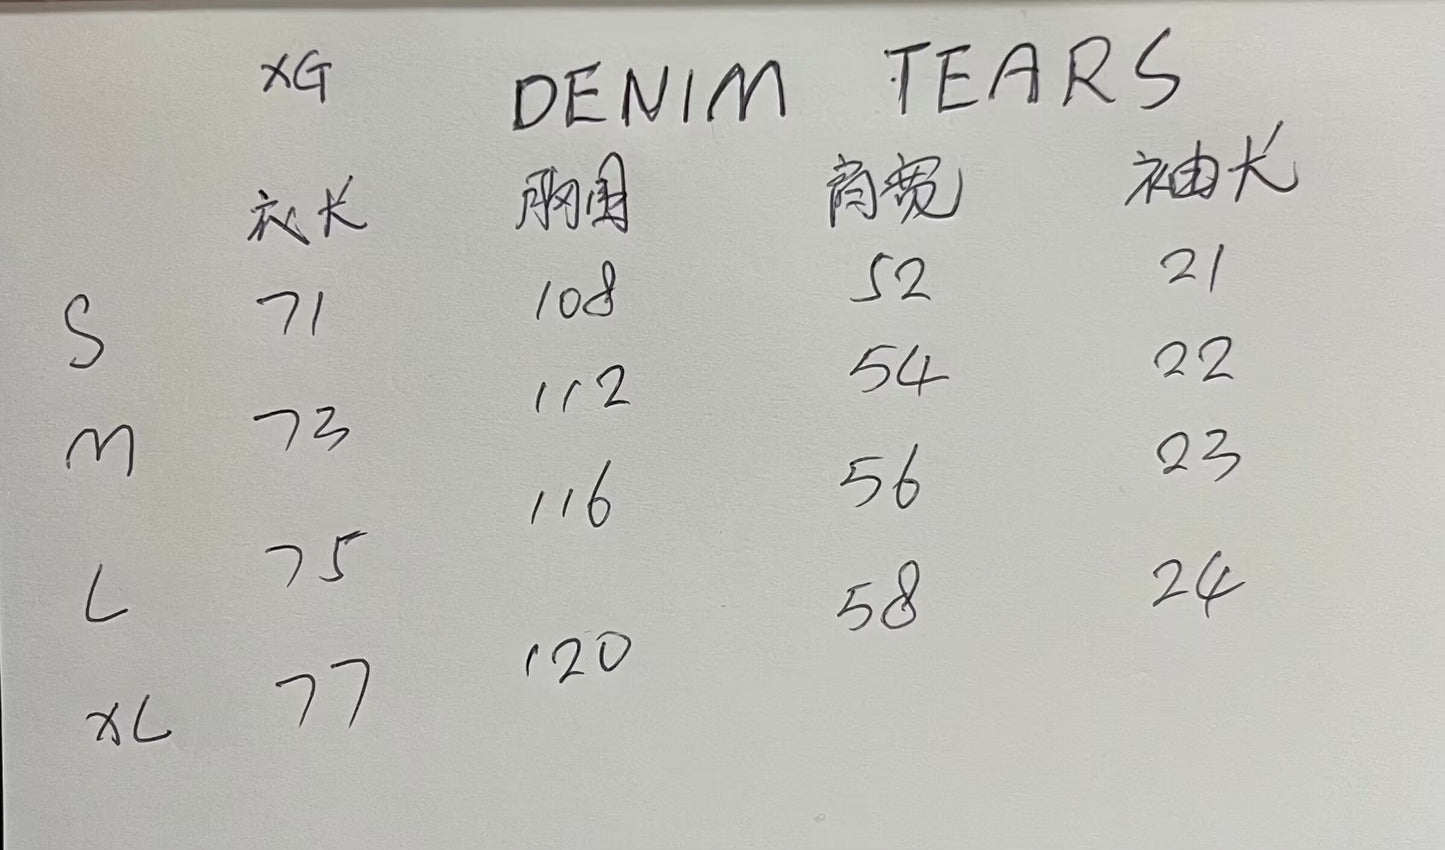 XG DENIM TEARS
衣长 胸围 肩宽 袖长
S 71 108 52 21
M 73 112 54 22
L 75 116 56 23
XL 77 120 58 24